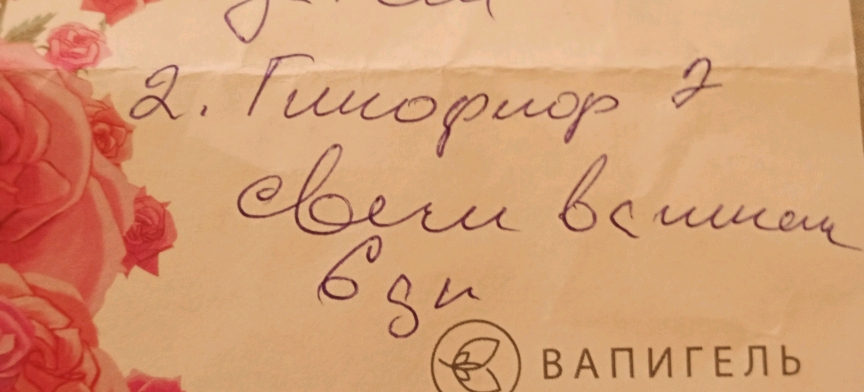 2. Гинофлор Э
свечи вагин
6 дн
ВАПИГЕЛЬ